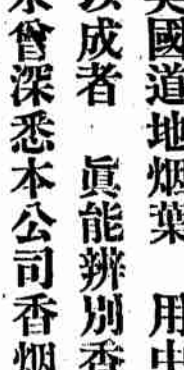 國道地烟葉　用
成者　眞能辨別香
會深悉本公司香烟